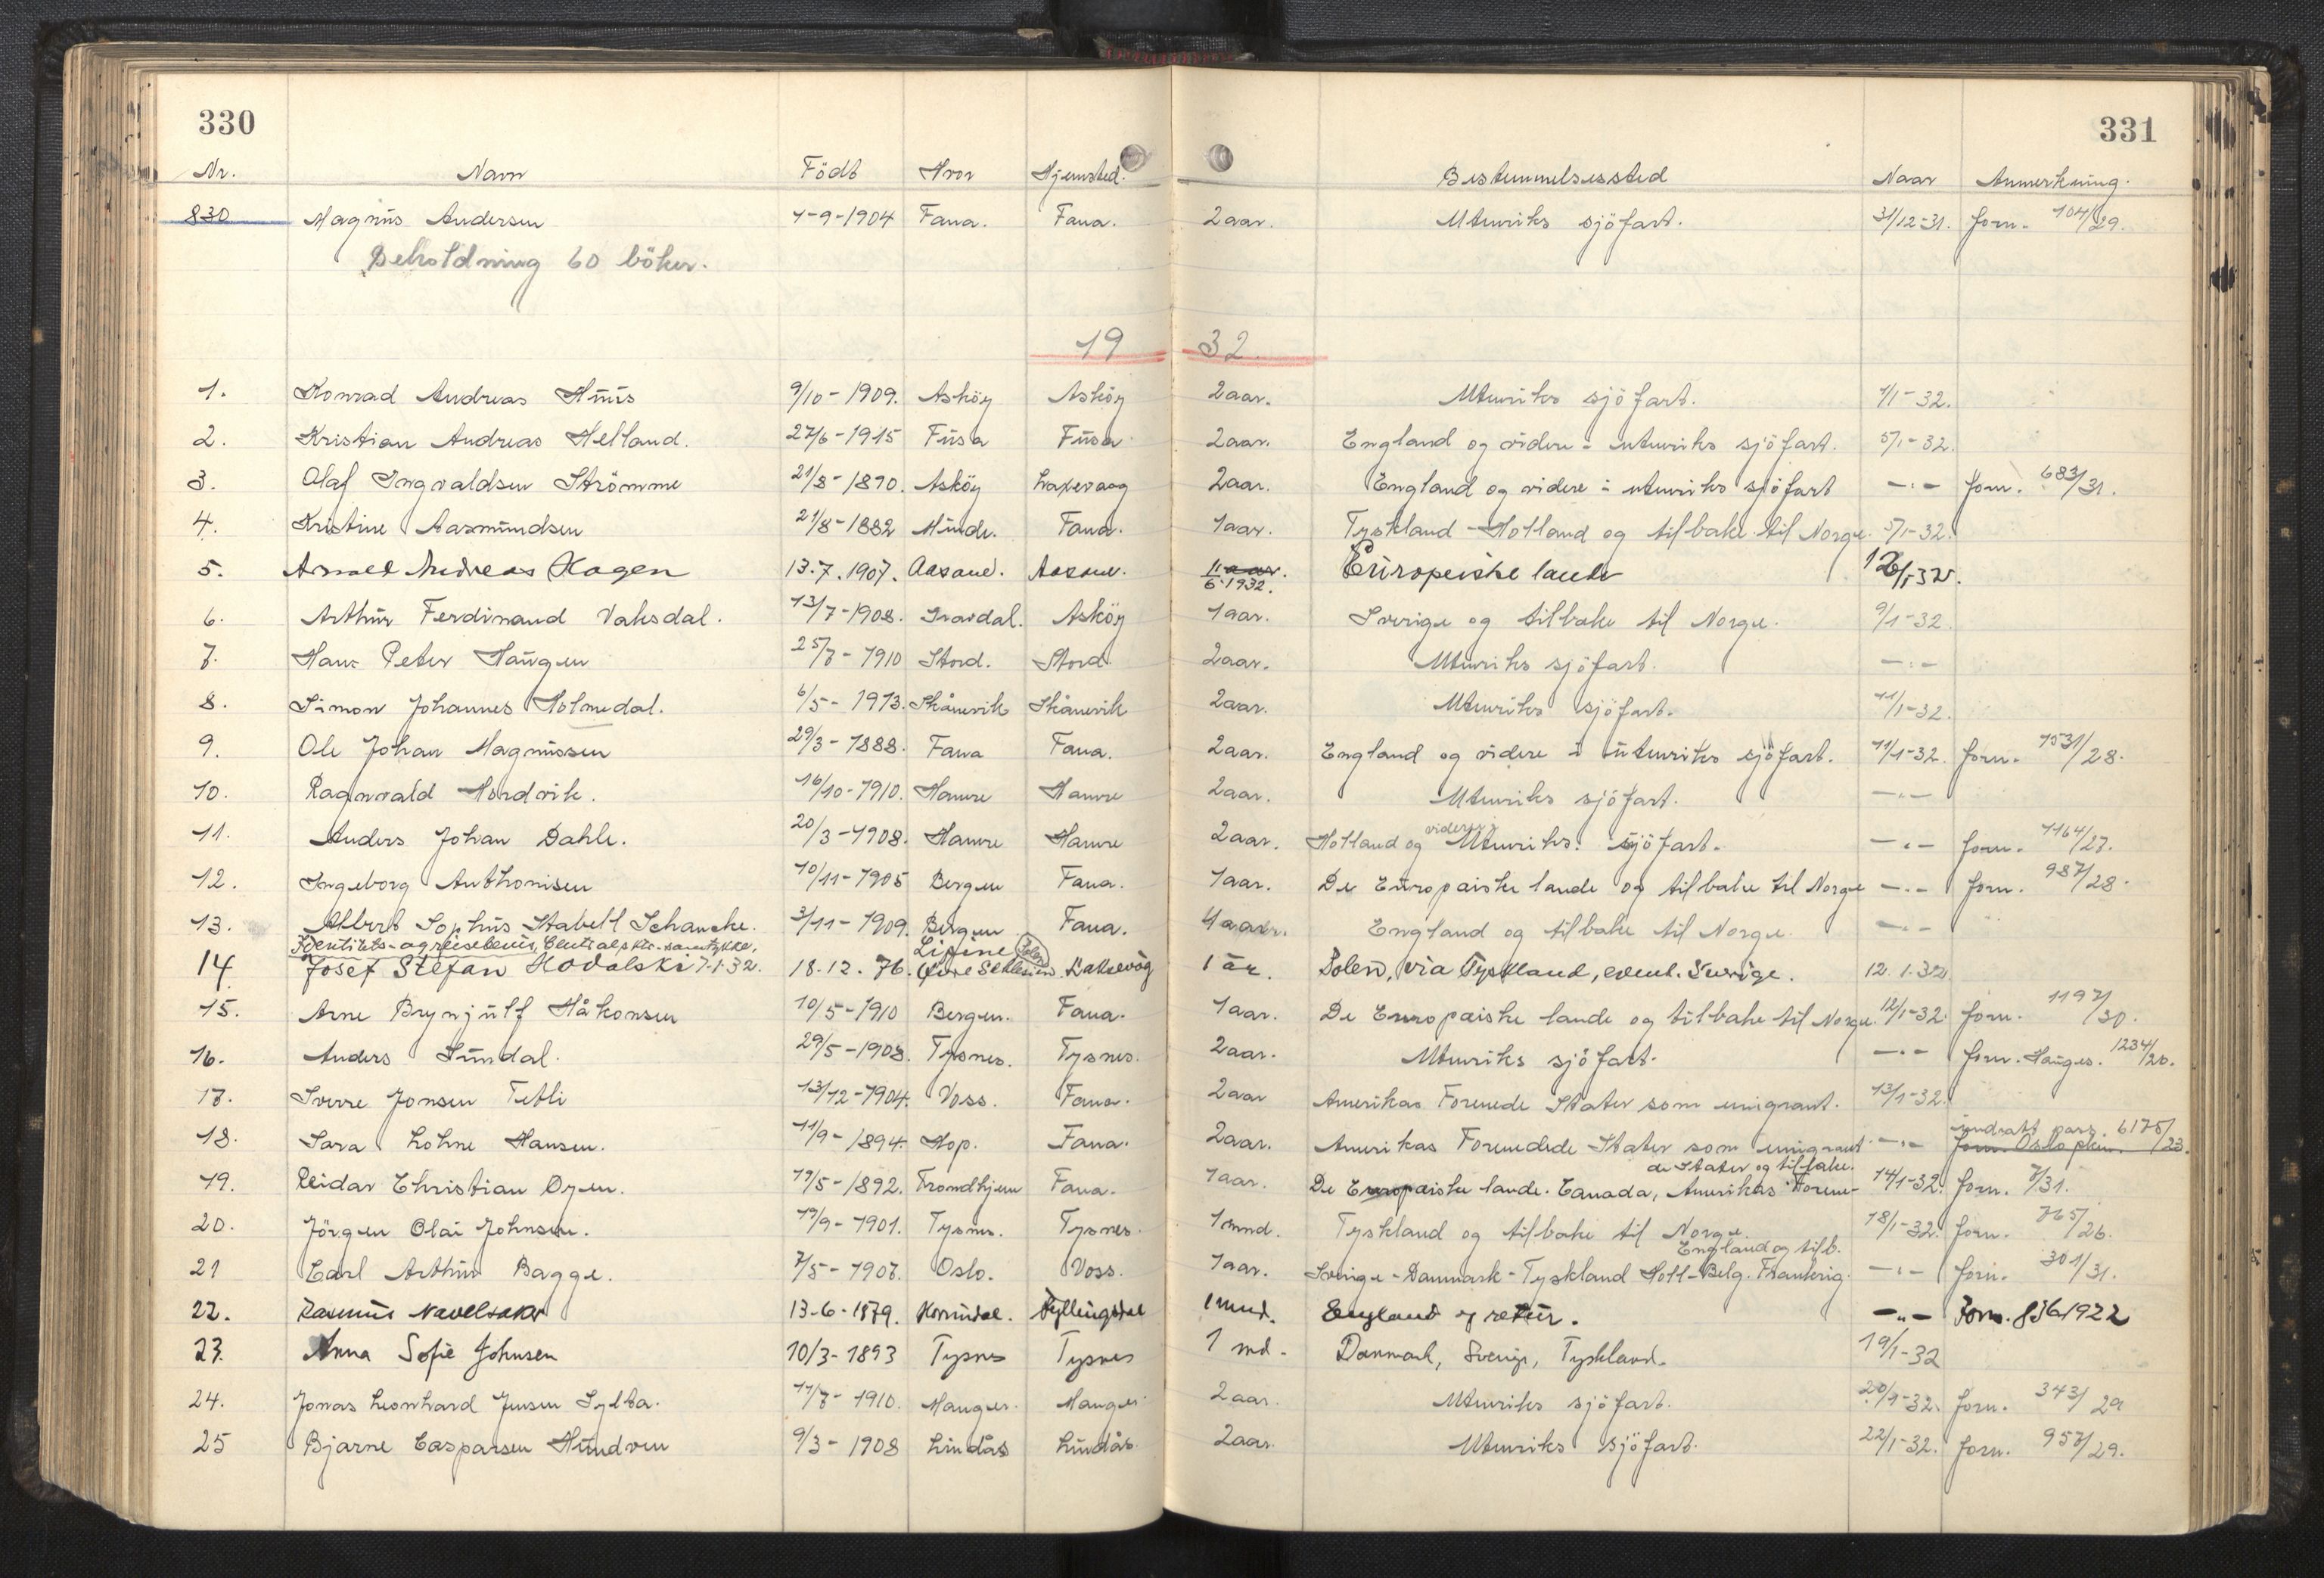 330
331
Nr. Navn Födt Hvor Hjemsted. Bestemmelsessted Naar Anmerkning.
830 Magnus Andersen 7-9-1904 Fana. Fana. 2 aar. Utenriks sjöfart. 31/12-31. Forn. 104/29.
Beholdning 60 böker.
19 32
1. Konrad Andreas Huus 9/10-1909. Asköy Asköy 2 aar. Utenriks sjöfart. 1/1-32.
2. Kristian Andreas Helland. 27/6-1915 Fusa Fusa 2 aar. England og videre i utenriks sjöfart. 5/1-32.
3. Olaf Ingvaldsen Strömme 21/8-1890. Asköy Laxevaag 2 aar. England og videre i utenriks sjöfart -"- Forn. 683/31.
4. Kristine Aasmundsen 21/8-1882 Minde. Fana. 1 aar. Tyskland-Holland og tilbake til Norge. 5/1-32.
5. Arnold Andreas Hagen 13.7.1907. Aasane. Aasane. 11/6.1932. Europeiske lande 12/1-32.
6. Arthur Ferdinand Vaksdal. 13/7-1908. Travdal. Asköy 1 aar. Sverige og tilbake til Norge. 9/1-32.
7. Hans Peter Haugen 25/7-1910 Stord. Stord 2 aar. Utenriks sjöfart. -"-
8. Simon Johannes Holmedal. 6/5-1913. Skånevik Skånevik 2 aar. Utenriks sjöfart. 11/1-32.
9. Ole Johan Magnussen 29/3-1888. Fana Fana. 2 aar. England og videre i utenriks sjöfart. 11/1-32. Forn. 1531/28.
10. Ragnvald Hordvik. 16/10-1910. Hamre Hamre 2 aar. Utenriks sjöfart. -"-
11. Anders Johan Dahle. 20/3-1908. Hamre Hamre 2 aar. Holland og videre i Utenriks sjöfart. -"- Forn. 1164/27.
12. Ingeborg Anthonisen 10/11-1905 Bergen Fana. 1 aar. De Europaiske lande og tilbake til Norge -"- Forn. 987/28.
13. Albert Sophus Stabell Schanche. 3/11-1909. Bergen Fana. 1 aar. England og tilbake til Norge. -"-
Identitets-og reisebevis, Centralpkt. samtykke,
14 Josef Stefan Kovalski 7-1-32. 18.12.76. Lipine (Polen) Övre Schlesien. Laksevåg 1 år. Polen, via Tyskland, event. Sverige. 12.1.32
15. Arne Brynjulf Håkonsen 10/5-1910 Bergen. Fana. 1 aar. De Europaiske lande og tilbake til Norge. 12/1-32. Forn. 1197/30.
16. Anders Sundal. 29/5-1908. Tysnes. Tysnes. 2 aar. Utenriks sjöfart. -"- Forn. Hauges. 1234/26.
17. Sverre Jonsen Tetli 13/12-1904. Voss. Fana. 2 aar Amerikas Forenede Stater som emigrant. 13/1-32.
18. Sara Lohne Hansen. 11/9-1894. Hop. Fana. 2 aar. Amerikas Forenedede Stater som emigrant -"- inndratt pass. 6175/23. Forn. Oslo pkm.
19. Reidar Christian Oyen. 19/5-1892. Trondhjem Fana. 1 aar. De Europaiske lande. Canada, Amerikas Forene- de Stater og tilbake. 14/1-32. Forn. 7/31.
20. Jörgen Olai Johnsen. 19/9-1901. Tysnes. Tysnes. 1 mnd. Tyskland og tilbake til Norge. 18/1-32. Forn. 765/26.
21 Carl Arthur Bagge. 7/5-1907. Oslo. Voss. 1 aar. Sverige-Danmark-Tyskland Holl-Belg. Frankrig. England og tilb. -"- Forn. 301/31.
22. Rasmus Navelsaker 13-6-1879. Hornindal. Fyllingsdal 1 mnd. England og retur. -"- Forn. 836 1922
23. Anna Sofie Johnsen 10/3-1893 Tysnes Tysnes 1 md. Danmark, Sverige, Tyskland. 19/1-32
24. Jonas Leonhard Jensen Sylta. 11/7-1910. Manger. Manger. 2 aar. Utenriks sjöfart. 20/1-32. Forn. 343/29
25 Bjarne Casparsen Hundven 9/3-1908 Lindås Lindås. 2 aar. Utenriks sjöfart. 22/1-32. Forn. 957/29.